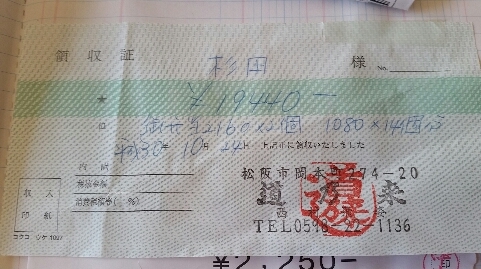 領収証 杉田 様 No.
★ ￥19440－
但 2160×2個 1080×14個分
平成30年10月24日 上記正に領収いたしました
内訳
税抜金額
消費税額等(%)
収入
印紙
コクヨ ウケ-1097
松阪市岡本町274-20
TEL0598-22-1136
¥2,250-